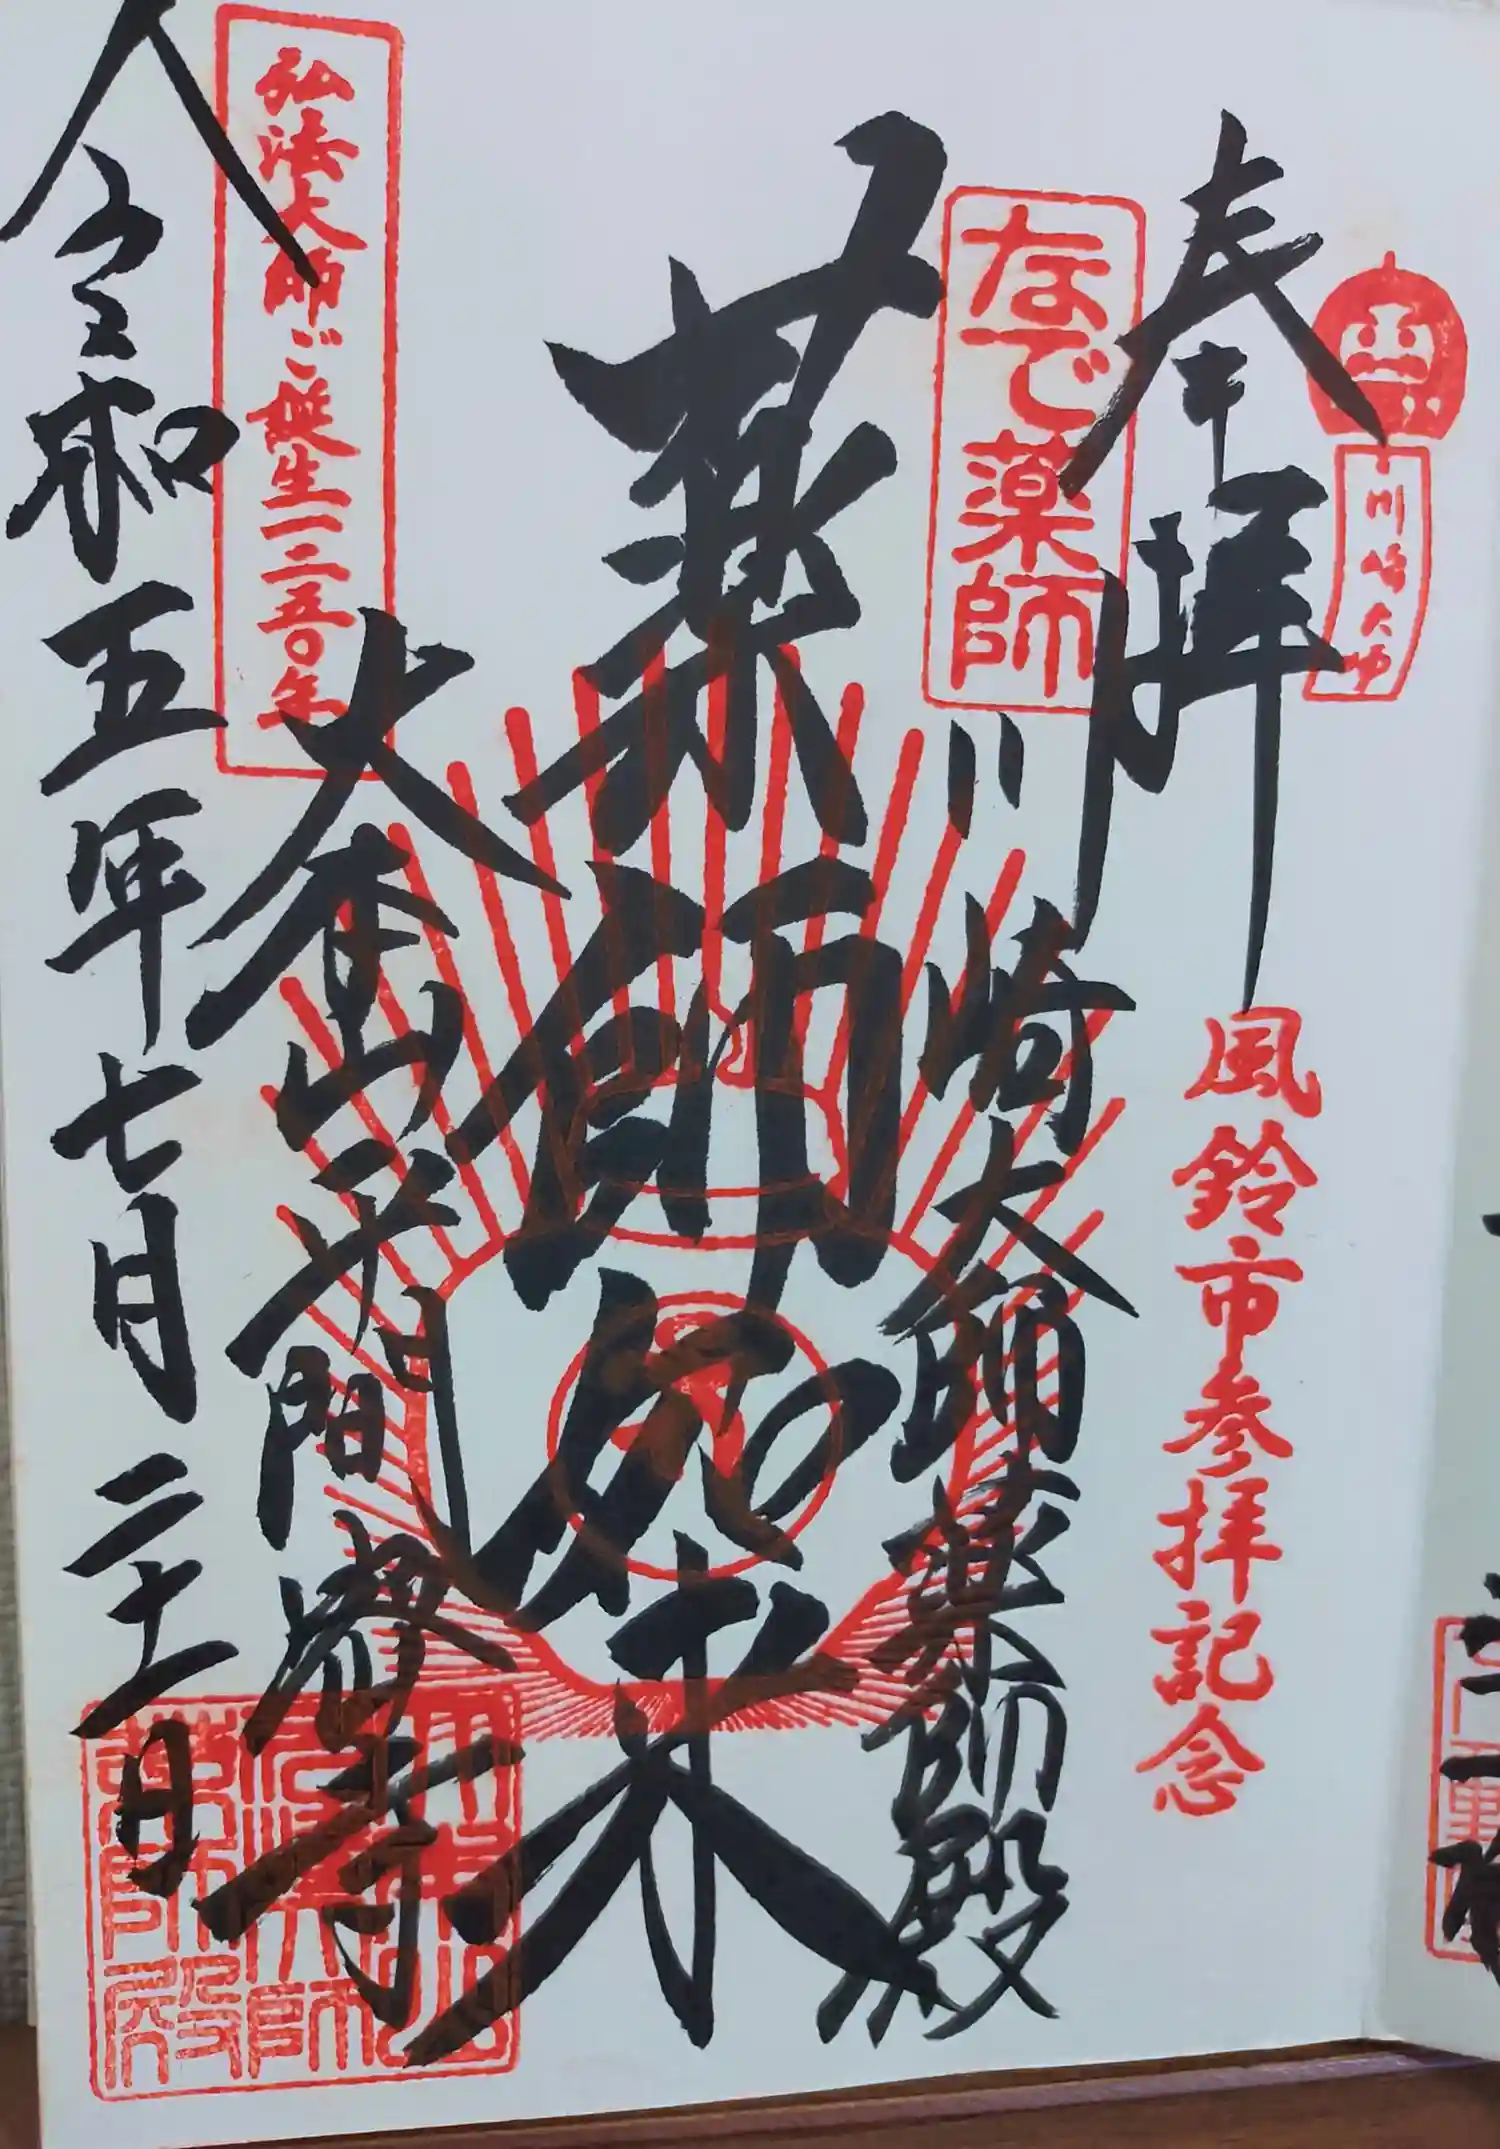 川崎大師
奉拝
風鈴市参拝記念
なで薬師
川崎大師薬師殿
薬師如来
大本山平間寺
弘法大師ご誕生一二五〇年
令和五年七月二十一日
川崎大師
薬師殿